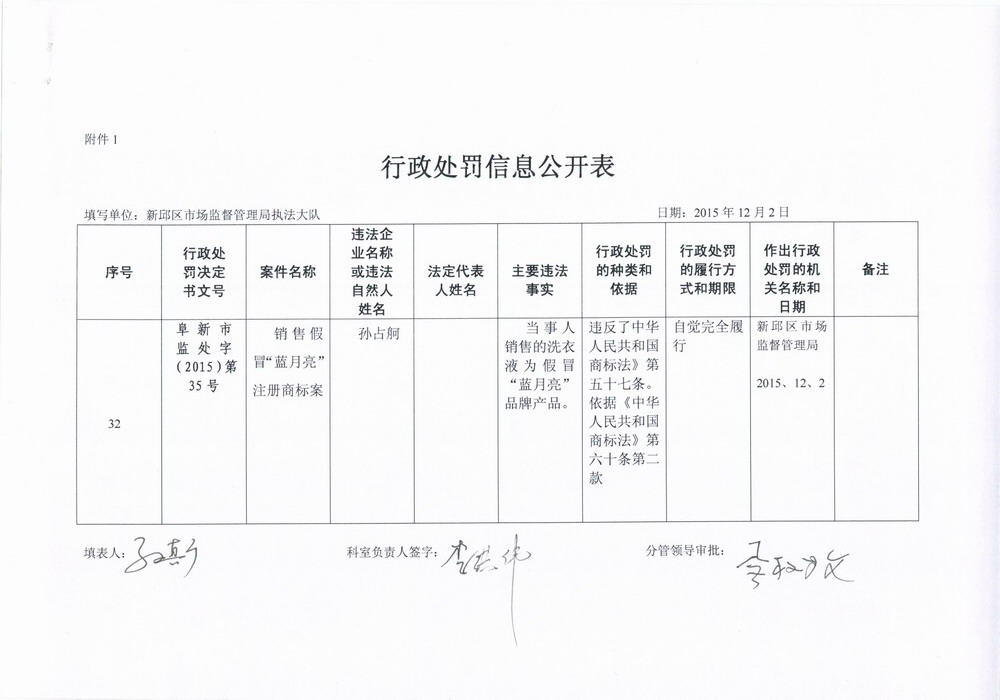 附件 1
行政处罚信息公开表
填写单位：新邱区市场监督管理局执法大队
日期：2015 年 12 月 2 日
序号
行政处
罚决定
书文号
案件名称
违法企
业名称
或违法
自然人
姓名
法定代表
人姓名
主要违法
事实
行政处罚
的种类和
依据
行政处罚
的履行方
式和期限
作出行政
处罚的机
关名称和
日期
备注
32
阜新市
监处字
（2015）第
35 号
销售假
冒“蓝月亮”
注册商标案
孙占舸
当事人
销售的洗衣
液为假冒
“蓝月亮”
品牌产品。
违反了中华
人民共和国
商标法》第
五十七条。
依据《中华
人民共和国
商标法》第
六十条第二
款
自觉完全履
行
新邱区市场
监督管理局
2015、12、2
填表人：
科室负责人签字：
分管领导审批：